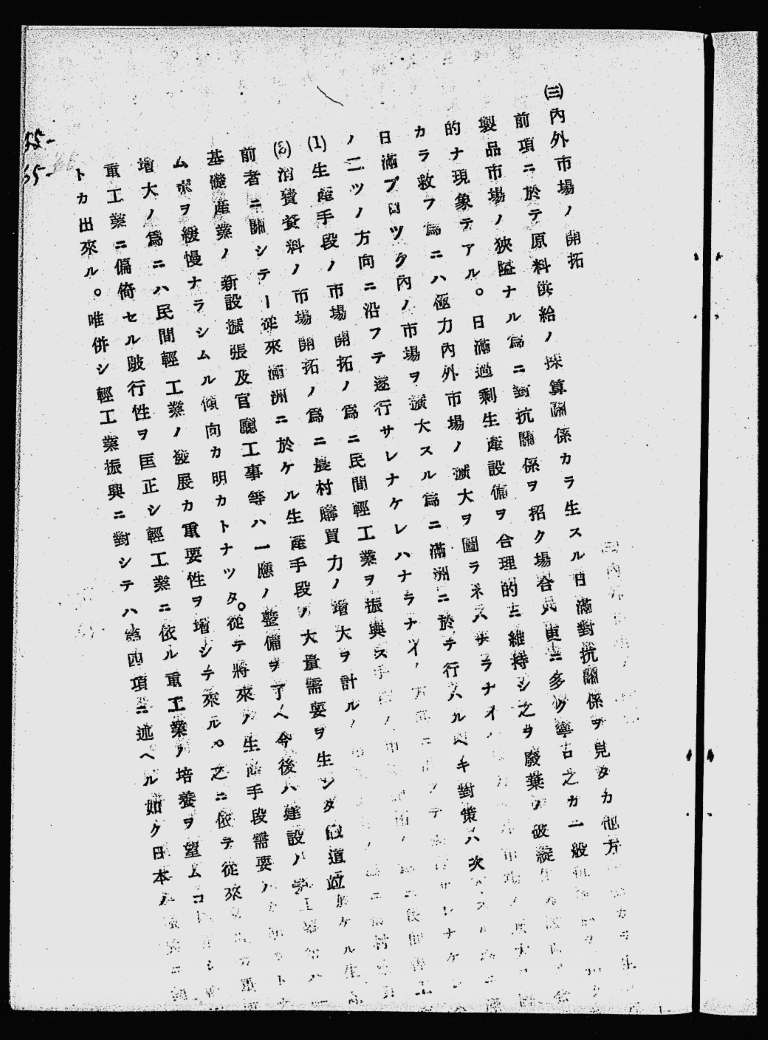 ㈢內外市場ノ開拓
前項ニ於テ原料供給ノ採算關係カラ生スル日滿對抗關係ヲ見タカ他方
製品市場ノ狹隘ナル爲ニ對抗關係ヲ招ク場合ハ更ニ多ク寧ロ之カ一般
的ナ現象テアル。日滿過剩生產設備ヲ合理的ニ維持シ之ヲ廢棄ノ破綻
カラ救フ爲ニハ極力內外市場ノ擴大ヲ圖ラネハナラナイ
日滿ブロック內ノ市場ヲ擴大スル爲ニ滿洲ニ於テ行ハルヘキ對策ハ次
ノ二ツノ方向ニ沿フテ遂行サレナケレハナラナイ
(1)生產手段ノ市場開拓ノ爲ニ民間輕工業ヲ振興ス
(2)消費資料ノ市場開拓ノ爲ニ農村購買力ノ增大ヲ計ル
前者ニ關シテー從來滿洲ニ於ケル生產手段ノ大量需要ヲ生シタ鐵道竝
基礎產業ノ新設擴張及官廳工事等ハ一應ノ整備ヲ了ヘ今後ハ建設ノ
ムポヲ緩慢ナラシムル傾向カ明カトナツタ。從テ將來ノ生產手段需要ノ
增大ノ爲ニハ民間輕工業ノ發展カ重要性ヲ增シテ來ル。之ニ依テ從來
重工業ニ偏倚セル跛行性ヲ匡正シ輕工業ニ依ル重工業ノ培養ヲ望ムコ
トカ出來ル。唯併シ輕工業振興ニ對シテハ第四項ニ述ヘル如ク日本ノ